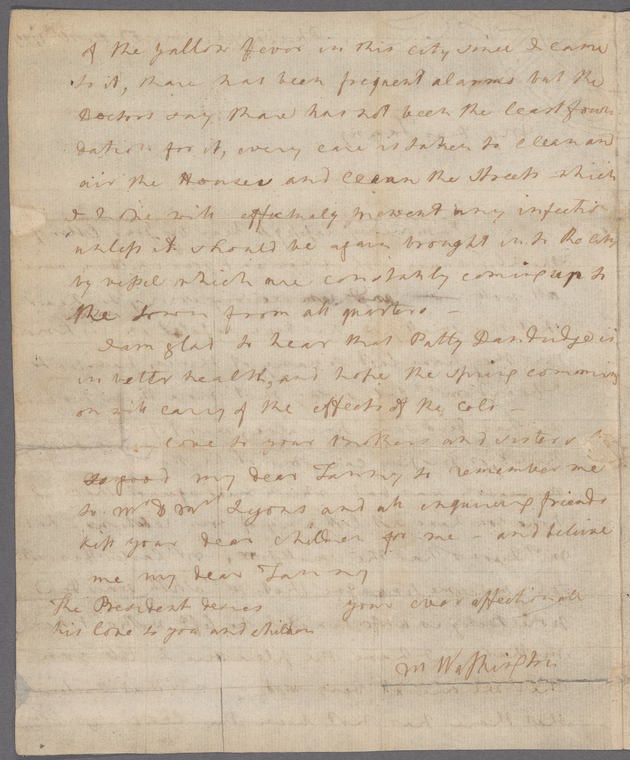 of the yallow fevor in this city since I came
to it, thare has been frequent alarms but the
Doctors say thare has not been the least foun
dation for it, every care is taken to clean and
air the Houses and clean the streets which
I hope will effectualy prevent any infectio
unless it should be again brought in to the city
by vessel which are constantly coming up to
the town from all quarters –
I am glad to hear that Patty Dandridge is
in better health, and hope the spring comming
on will cary of the effects of the cold –
– Love to your Brothers and sisters be
so good my dear Fanny to remember me
to Mr & Mrs Lyons and all inquiring friends
kiss your dear children for me – and beleive
me my dear Fanny
your ever affectionate
The President desires
his love to you and children
M Washington